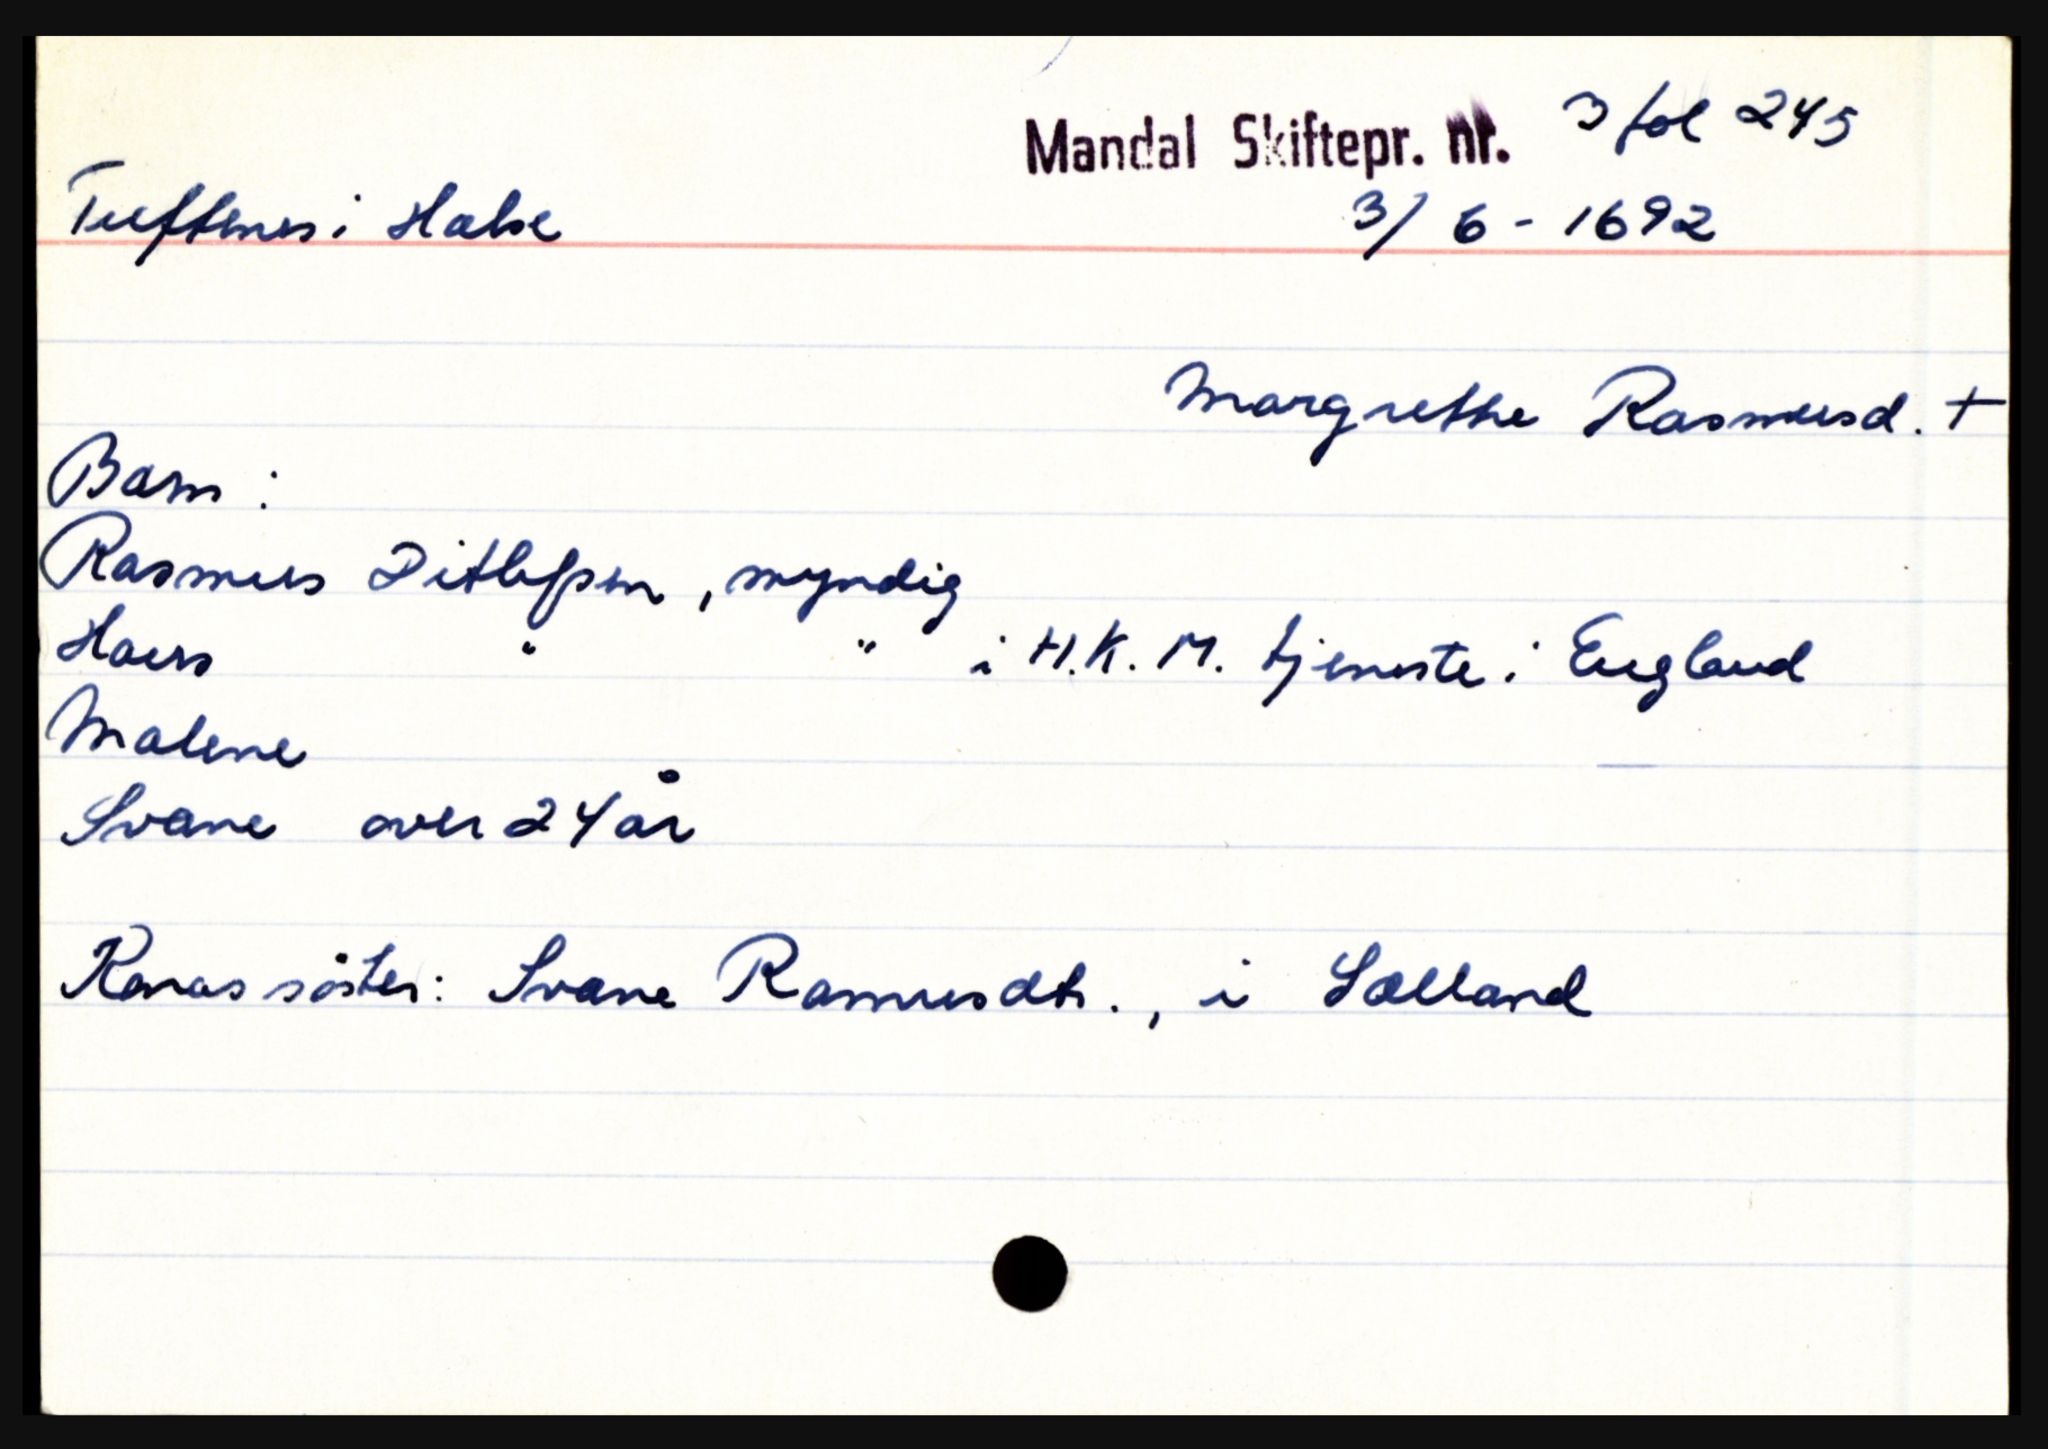 Mandal Skiftepr. nr. 3 fol 245
Tuftenes i Halse 3/6-1692
Margrethe Rasmusd. +
Barn:
Rasmus Ditlefsen, myndig
Hans " " i H.K.M. tjeneste i England
Malene
Svane over 24 år
Konas söster: Svane Rasmusdtr., i Sælland